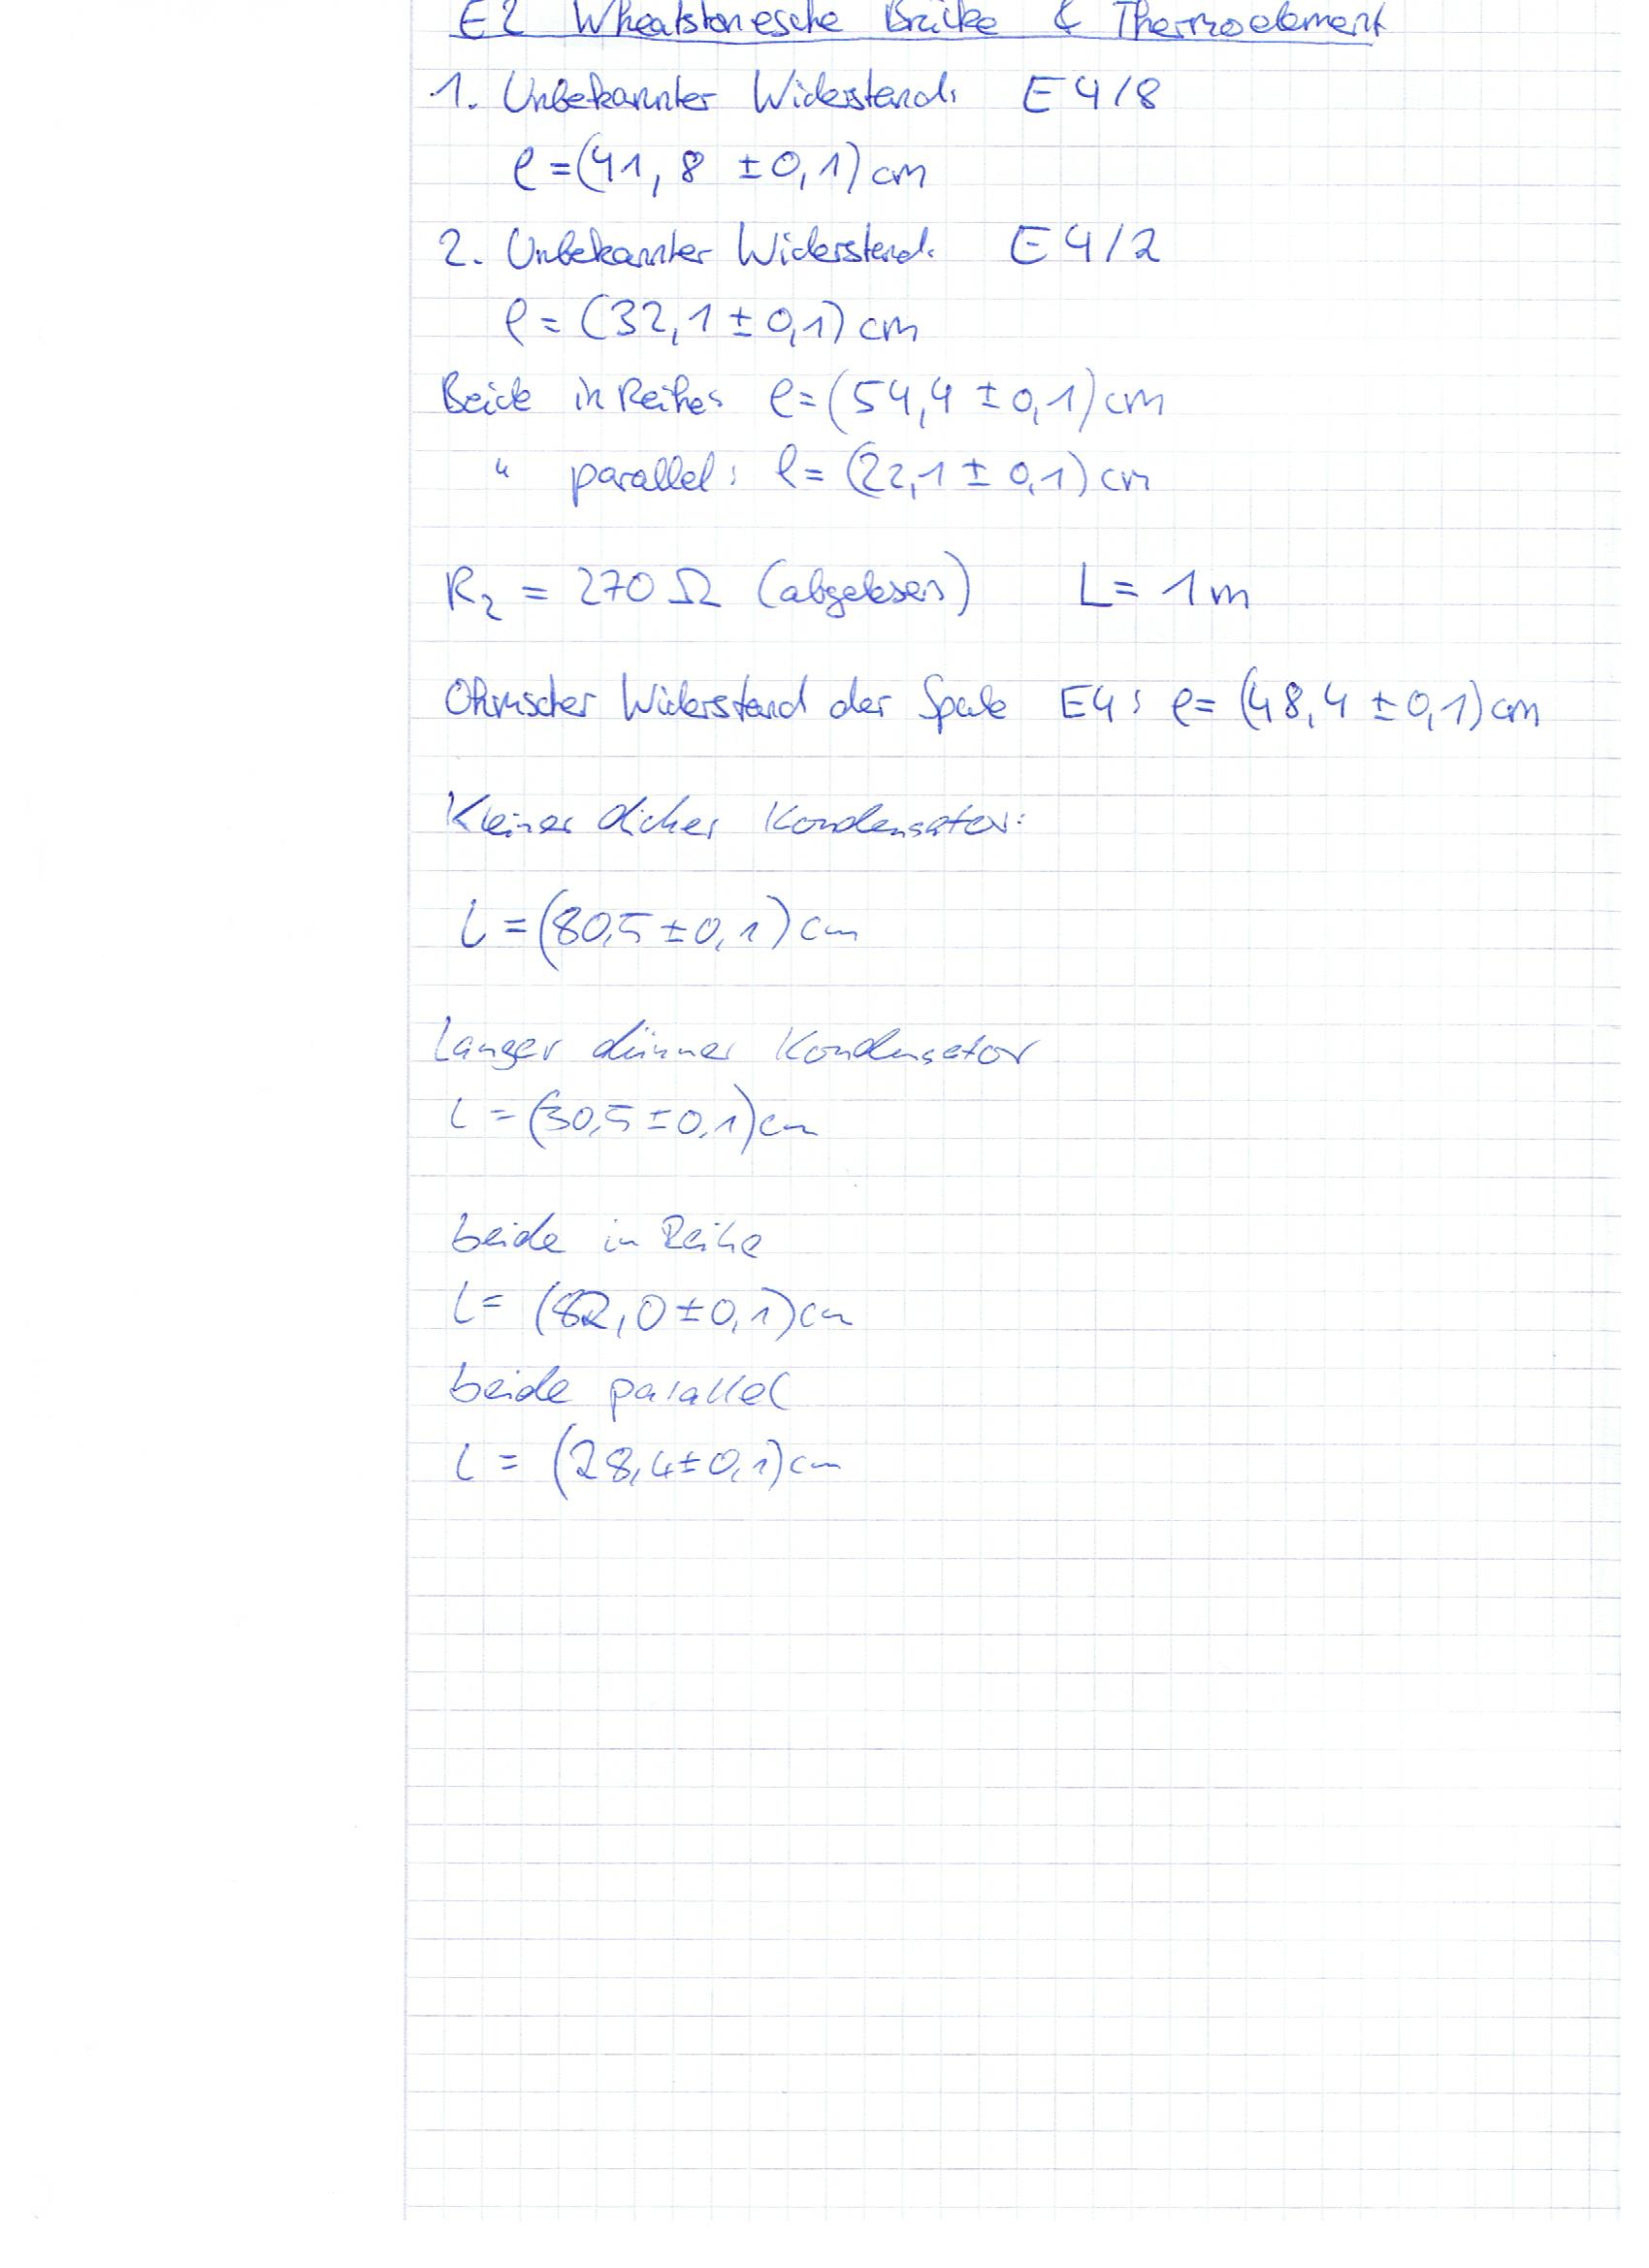 E2 Wheatstonesche Brücke & Thermoelement
1. Unbekannter Widerstand: E4/8
l = (41,8 ± 0,1) cm
2. Unbekannter Widerstand: E4/2
l = (32,1 ± 0,1) cm
Beide in Reihe: l = (54,4 ± 0,1) cm
" parallel: l = (22,1 ± 0,1) cm
R₂ = 270 Ω (abgelesen) L = 1 m
Ohmscher Widerstand der Spule E4: l = (48,4 ± 0,1) cm
Kleiner dicker Kondensator:
l = (80,5 ± 0,1) cm
Langer dünner Kondensator
l = (30,5 ± 0,1) cm
beide in Reihe
l = (82,0 ± 0,1) cm
beide parallel
l = (28,4 ± 0,1) cm